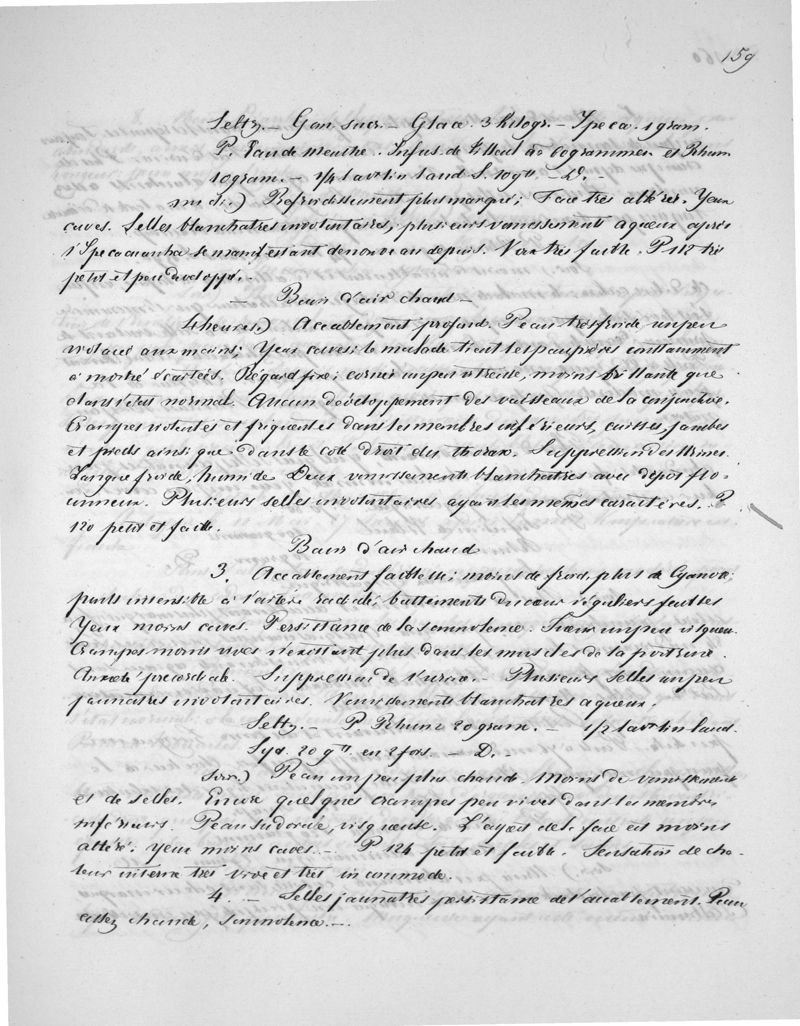 159
Seltz. — Gom sucr. — Glace. 3 kilogr. — Ipeca. 1 gram.
P. Eau de menthe. Infus. de Tilleul āā 60 grammes et Rhum
10 gram. — 1/4 lavt lin laud S. 10 gtt. — D. —
midi.) Refroidissement plus marqué; Face très altérée. Yeux
caves. Selles blanchatres involontaires, plusieurs vomissements aqueux après
l'Ipecacuanha se manifestant de nouveau depuis. Voix très faible. P. 112 très
petit et peu developpé.
— Bain d'air chaud —
4 heures.) Accablement profond. Peau très froide un peu
violacée aux mains; Yeux caves; le malade tient les paupières constamment
à moitié écartées. Régard fixe; cornée un peu vitreuse, moins brillante que
dans l'état normal. Aucun développement des vaisseaux de la conjonctive.
Crampes violentes et fréquentes dans les membres inférieurs, cuisses, jambes
et pieds ainsi que dans le coté droit du thorax. Suppression des Urines.
Langue froide, humide. Deux vomissements blanchatres avec dépôt flo-
conneux. Plusieurs selles involontaires ayant les mêmes caractères. P
120 petit et faible.
Bain d'air chaud
3. Accablement faiblesse; moins de froid, plus de Cyanose;
pouls insensible à l'artère radiale; battements du cœur réguliers faibles
Yeux moins caves. Persistance de la somnolence. Sueur un peu visqueu.
Crampes moins vives n'existant plus dans les muscles de la poitrine.
Anxiété précordiale. Suppression de l'urine. — Plusieurs selles un peu
jaunatres involontaires. Vomissements blanchatres aqueux.
Seltz. — P. Rhum 20 gram. — 1/2 lavt lin laud.
Syd. 20 gtt. en 2 fois. — D. —
Soir.) Peau un peu plus chaude. Moins de vomissements
et de selles. Encore quelques crampes peu vives dans les membres
inférieurs. Peau sudorale, visqueuse. L'aspect de la face est moins
altéré; yeux moins caves. — P 124 petit et faible. Sensation de cha-
leur interne très vive et très incommode.
4. — Selles jaunatres persistance de l'accablement. Peau
assez chaude, somnolence. —